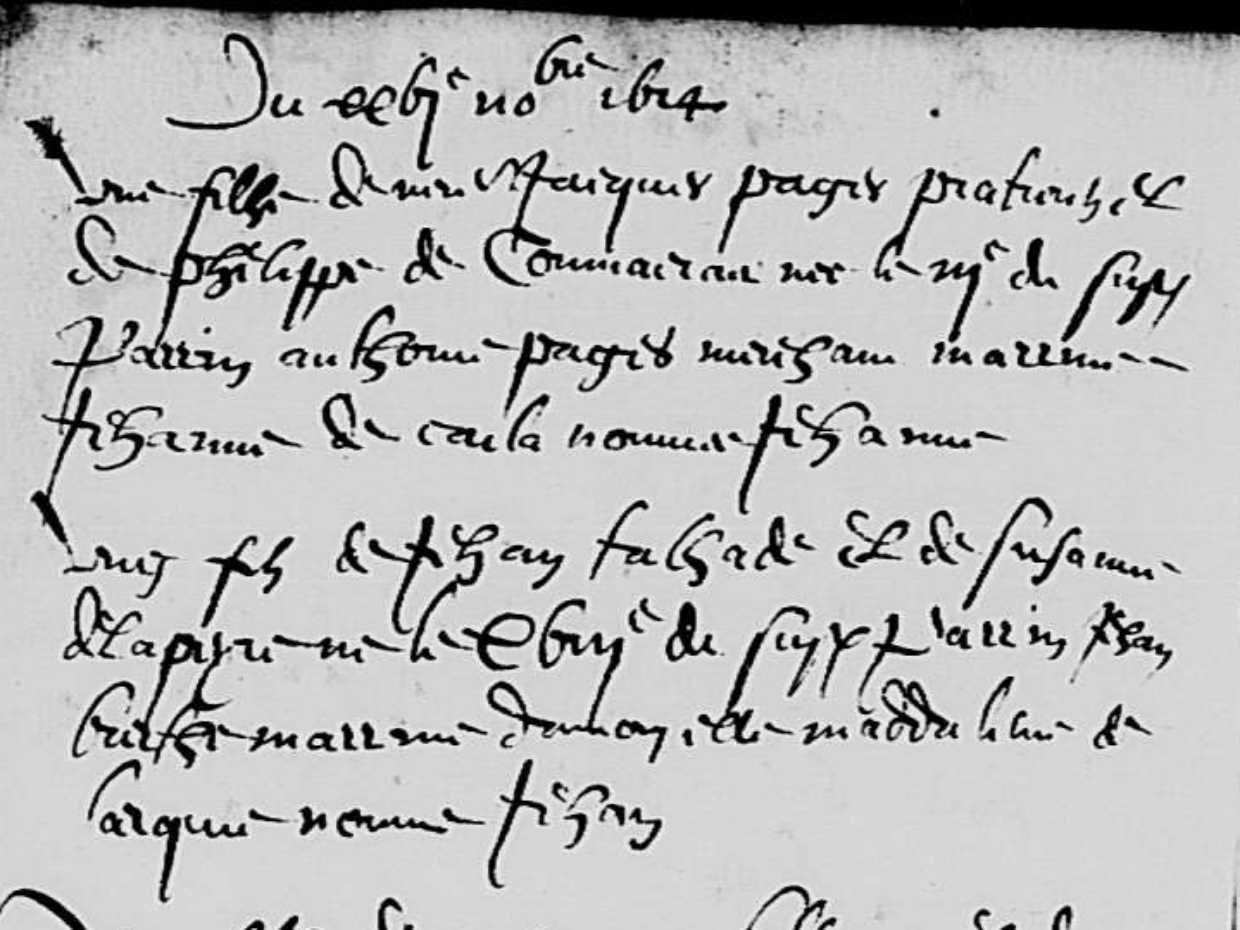 Du xxbjᵉ noᵇʳᵉ 1614
une filhe de me Jacques pages praticn et
de phelippe de Conmairan nee le iijᵉ du susd
Parrin anthoine pages merchant marrine
Jehanne de carla nommee Jehanne
ung filz de Jehan falhade et de susanne
de lapeyre ne le xbiijᵉ du susd Parrin Jehan
marrine damoyselle maddelene de
larque nomme Jehan